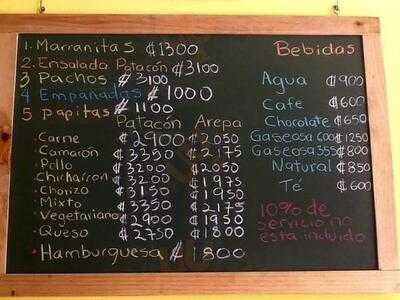 1. Marranitas ₡1300
2. Ensalada Patacón ₡3100
3 Pachos ₡3100
4 Empañadas ₡1000
5 papitas ₡1100
Patacón Arepa
· Carne ₡2900 ₡2050
· Camarón ₡3350 ₡2175
· Pollo ₡3200 ₡2050
· Chicharron ₡3200 ₡1975
· Chorizo ₡3150 ₡1950
· Mixto ₡3350 ₡2175
· Vegetariano ₡2900 ₡1950
· Queso ₡2750 ₡1800
· Hamburguesa ₡1800
Bebidas
Agua ₡900
Cafe ₡600
Chocolate ₡650
Gaseosa 600 ₡1250
Gaseosa 355 ₡800
Natural ₡850
Té ₡600
10% de
servicio no
esta incluido